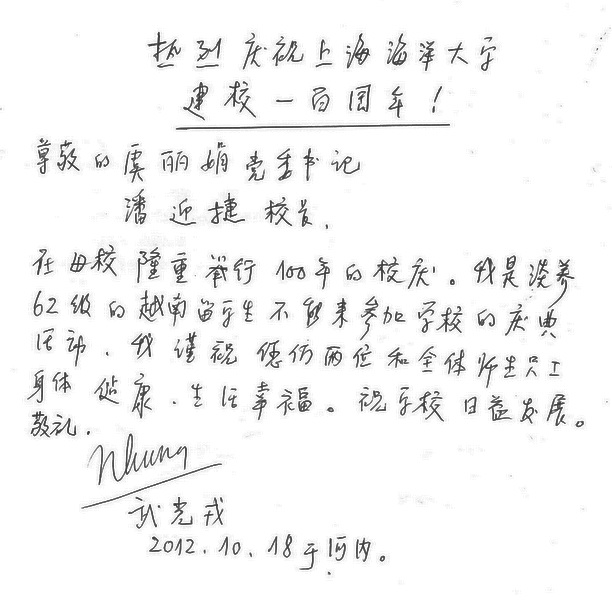 热烈庆祝上海海洋大学
建校一百周年！
尊敬的虞丽娟党委书记
潘迎捷校长，
在母校隆重举行100年的校庆。我是淡养
62级的越南留学生不能来参加学校的庆典
活动，我谨祝您们两位和全体师生员工
身体健康、生活幸福。祝学校日益发展。
敬礼。
Nhung
武光戎
2012.10.18于河内。